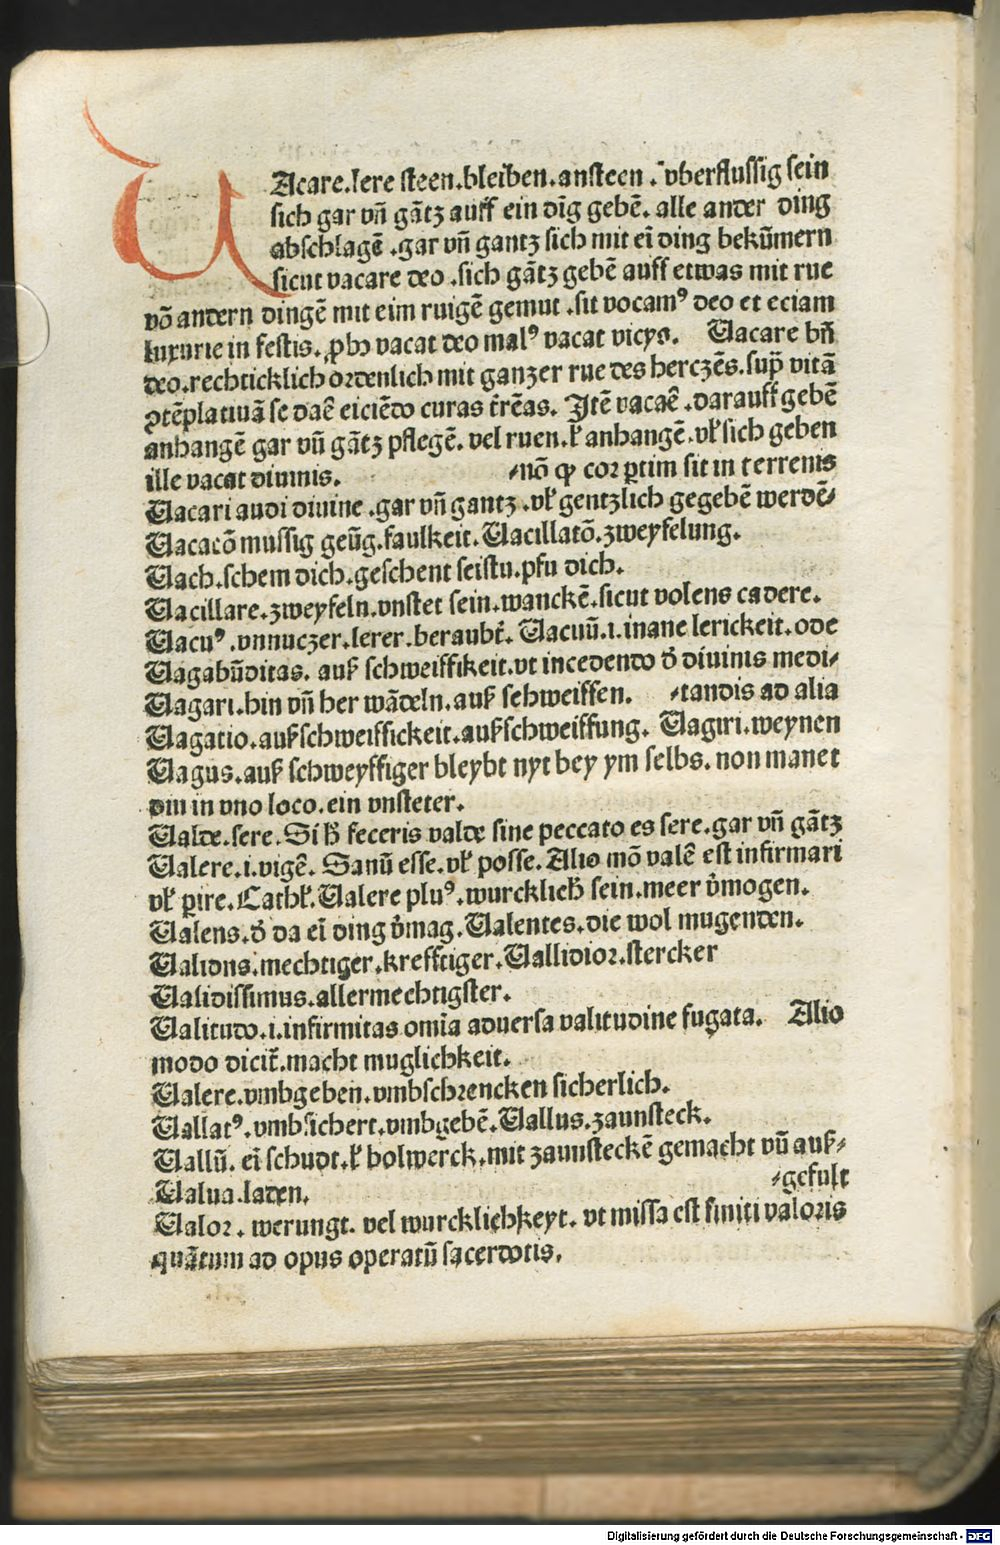 VAcare.lere steen.bleiben.ansteen . vberflussig sein
sich gar vñ gãtz auff ein dĩg gebẽ. alle ander ding
abschlagẽ .gar vñ gantz sich mit eĩ ding bekũmern
sicut vacare deo .sich gãtz gebẽ auff etwas mit rue
võ andern dingẽ mit eim ruigẽ gemut .sit vocamꝰ deo et eciam
luxurie in festis. ꝓbꝫ vacat deo malꝰ vacat vicys. Uacare bñ
deo.rechticklich ordenlich mit ganzer rue des herczẽs.sup̃ vitã
ꝯtẽplatiuã se daẽ eiciẽdo curas t̃rẽas. Itẽ vacaẽ .darauff gebẽ
anhangẽ gar vñ gãtz pflegẽ. vel ruen.ꝉ anhangẽ.vꝉ sich geben
ille vacat diuinis. -nõ ꝙ cor ꝑtim sit in terrenis
Uacari audi diuine .gar vñ gantz .vꝉ gentzlich gegebẽ werdẽ-
Uacacõ mussig geũg.faulkeit.Uacillatõ.zweyfelung.
Uach.schem dich.geschent seistu.pfu dich.
Uacillare.zweyfeln.vnstet sein.wanckẽ.sicut volens cadere.
Uacuꝰ .vnnuczer.lerer.beraubt̃. Uacuũ.i.inane lerickeit.ode
Uagabũditas. auß schweiffikeit.vt incedendo d̉ diuinis medi-
Uagari.hin vñ her wãdeln.auß schweiffen. -tandis ad alia
Uagatio.außschweiffickeit.außschweiffung. Uagiri.weynen
Uagus.auß schweyffiger bleybt nyt bey ym selbs.non manet
diu in vno loco.ein vnsteter.
Ualde.sere.Si ꝧ feceris valde sine peccato es sere.gar vñ gãtz
Ualere.i.vigẽ. Sanũ esse.vꝉ posse.Alio mõ valẽ est infirmari
vꝉ ꝑire.Cathꝉ.Ualere pluꝰ.wurcklich sein.meer v̉mogen.
Ualens.d̉ da eĩ ding v̉mag.Ualentes.die wol mugenden.
Ualidus.mechtiger.krefftiger.Uallidior.stercker
Ualidissimus.allermechtigster.
Ualitudo.i.infirmitas omĩa aduersa valitudine fugata. Alio
modo dicit̃.macht muglichkeit.
Ualere.vmbgeben.vmbschrencken sicherlich.
Uallatꝰ.vmbsichert.vmbgebẽ.Uallus.zaunsteck.
Uallũ. eĩ schudt.ꝉ bolwerck.mit zaunsteckẽ gemacht vñ auß-
Ualua.laden. -gefult
Ualor. werungt. vel wurcklichkeyt. vt missa est finiti valoris
quãtum ad opus operatũ sacerdotis.
Digitalisierung gefördert durch die Deutsche Forschungsgemeinschaft - DFG